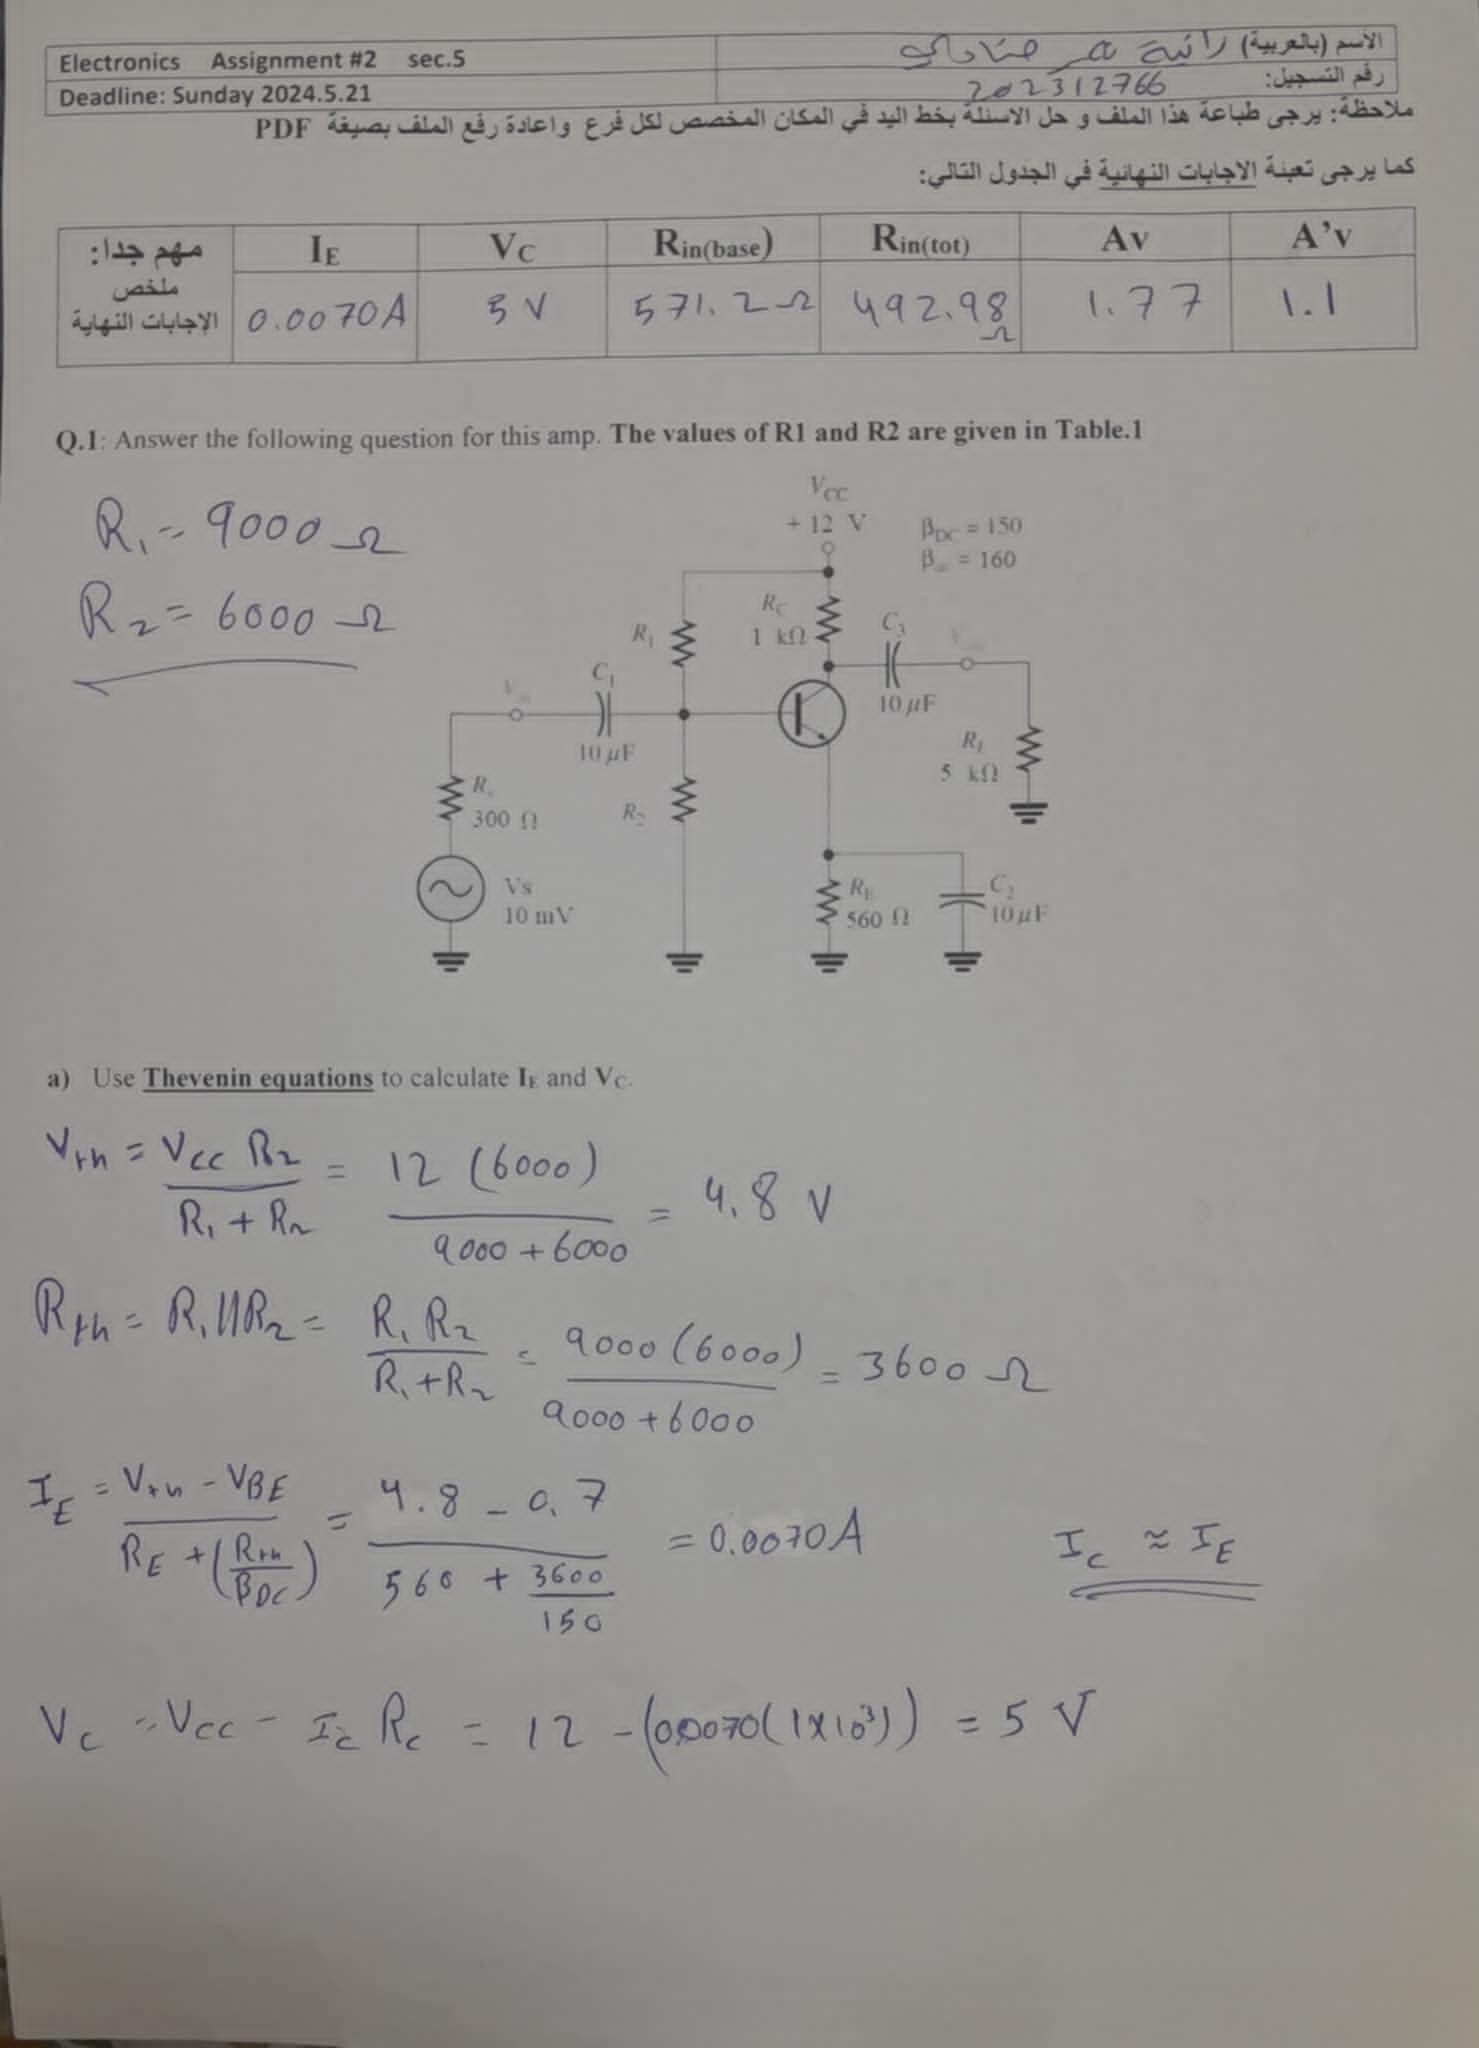 Electronics Assignment #2 sec.5
الأسم (بالعربية) رانية
Deadline: Sunday 2024.5.21
رقم التسجيل: 202312766
ملاحظة: يرجى طباعة هذا الملف و حل الاسئلة بخط اليد في المكان المخصص لكل فرع واعادة رفع الملف بصيغة PDF
كما يرجى تعبئة الاجابات النهائية في الجدول التالي:
مهم جدا: ملخص الاجابات النهاية
IE VC Rin(base) Rin(tot) Av A'v
0.0070A 5 V 571.2 Ω 492.98 Ω 1.77 1.1
Q.1: Answer the following question for this amp. The values of R1 and R2 are given in Table.1
R1 = 9000 Ω
R2 = 6000 Ω
VCC
+12 V
βDC = 150
βac = 160
RC
1 kΩ
R1
C3
10 μF
C1
10 μF
RL
5 kΩ
Rs
300 Ω
R2
Vs
10 mV
RE
560 Ω
C2
10 μF
a) Use Thevenin equations to calculate IE and VC.
Vth = VCC R2 / R1 + R2 = 12 (6000) / 9000 + 6000 = 4.8 V
Rth = R1 || R2 = R1 R2 / R1 + R2 = 9000 (6000) / 9000 + 6000 = 3600 Ω
IE = Vth - VBE / RE + (Rth / βDC) = 4.8 - 0.7 / 560 + 3600 / 150 = 0.0070 A
IC ≈ IE
VC = VCC - IC RC = 12 - (0.0070 (1×10³)) = 5 V